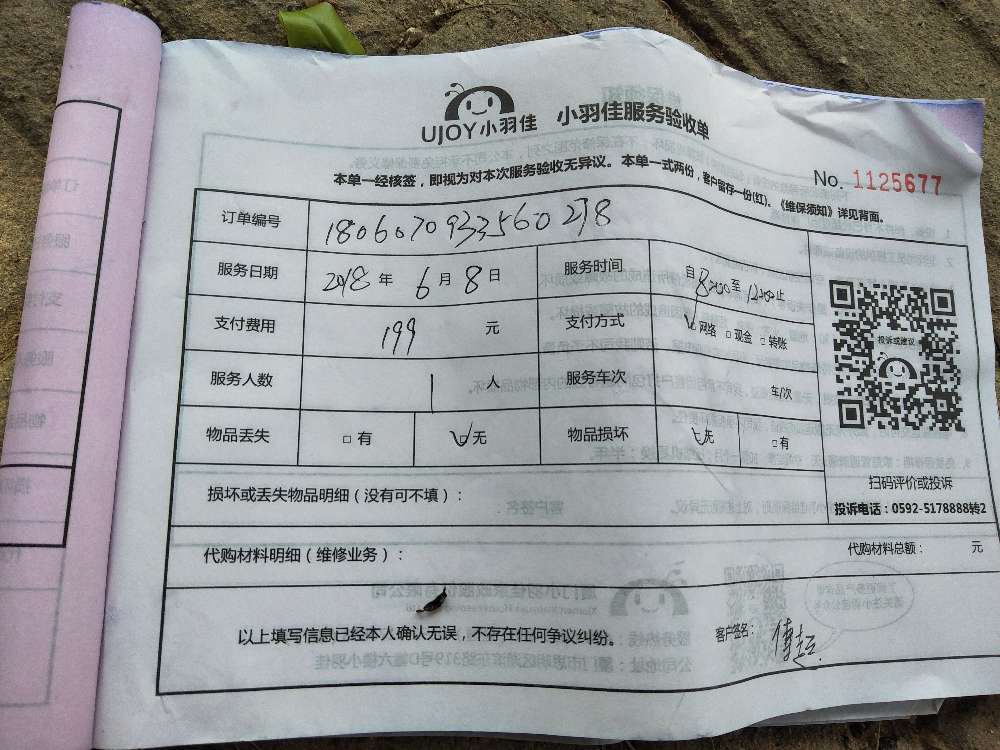 UJOY小羽佳 小羽佳服务验收单
No. 1125677
本单一经核签，即视为对本次服务验收无异议。本单一式两份，客户留存一份(红)。《维保须知》详见背面。
订单编号 1806070933560278
服务日期 2018 年 6 月 8 日 服务时间 自 8:00 至 12:00 止
支付费用 199 元 支付方式 ☑网络 □现金 □转账
服务人数 1 人 服务车次 车/次
物品丢失 □有 ☑无 物品损坏 ☑无 □有
投诉或建议
扫码评价或投诉
投诉电话：0592-5178888转2
损坏或丢失物品明细（没有可不填）：
代购材料明细（维修业务）： 代购材料总额： 元
以上填写信息已经本人确认无误，不存在任何争议纠纷。 客户签名：